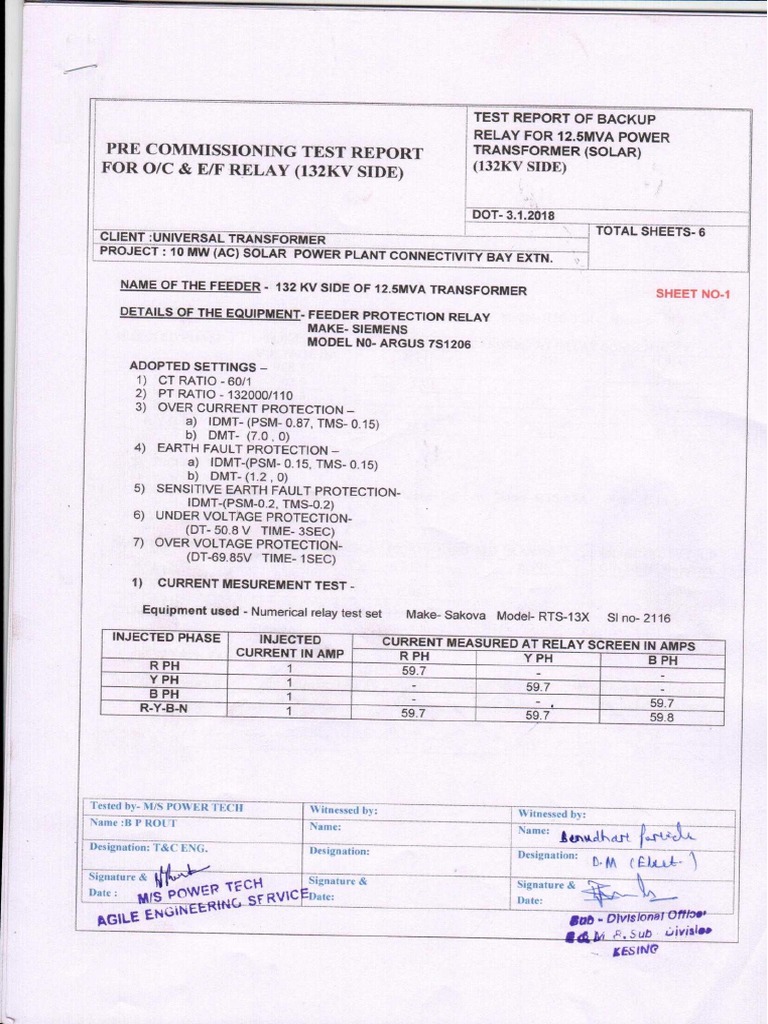 PRE COMMISSIONING TEST REPORT
FOR O/C & E/F RELAY (132KV SIDE)
TEST REPORT OF BACKUP
RELAY FOR 12.5MVA POWER
TRANSFORMER (SOLAR)
(132KV SIDE)
DOT- 3.1.2018
CLIENT :UNIVERSAL TRANSFORMER
TOTAL SHEETS- 6
PROJECT : 10 MW (AC) SOLAR POWER PLANT CONNECTIVITY BAY EXTN.
NAME OF THE FEEDER - 132 KV SIDE OF 12.5MVA TRANSFORMER
SHEET NO-1
DETAILS OF THE EQUIPMENT- FEEDER PROTECTION RELAY
MAKE- SIEMENS
MODEL N0- ARGUS 7S1206
ADOPTED SETTINGS –
1) CT RATIO - 60/1
2) PT RATIO - 132000/110
3) OVER CURRENT PROTECTION –
a) IDMT- (PSM- 0.87, TMS- 0.15)
b) DMT- (7.0 , 0)
4) EARTH FAULT PROTECTION –
a) IDMT-(PSM- 0.15, TMS- 0.15)
b) DMT- (1.2 , 0)
5) SENSITIVE EARTH FAULT PROTECTION-
IDMT-(PSM-0.2, TMS-0.2)
6) UNDER VOLTAGE PROTECTION-
(DT- 50.8 V TIME- 3SEC)
7) OVER VOLTAGE PROTECTION-
(DT-69.85V TIME- 1SEC)
1) CURRENT MESUREMENT TEST -
Equipment used - Numerical relay test set Make- Sakova Model- RTS-13X Sl no- 2116
INJECTED PHASE INJECTED CURRENT IN AMP CURRENT MEASURED AT RELAY SCREEN IN AMPS
R PH Y PH B PH
R PH 1 59.7 - -
Y PH 1 - 59.7 -
B PH 1 - - 59.7
R-Y-B-N 1 59.7 59.7 59.8
Tested by- M/S POWER TECH Witnessed by: Witnessed by:
Name :B P ROUT Name: Name:
Designation: T&C ENG. Designation: Designation: D.M (Elect.)
Signature & Signature & Signature &
Date : Date: Date:
M/S POWER TECH
AGILE ENGINEERING SERVICE
Sub - Divisional Officer
M. R. Sub - Division
KESING